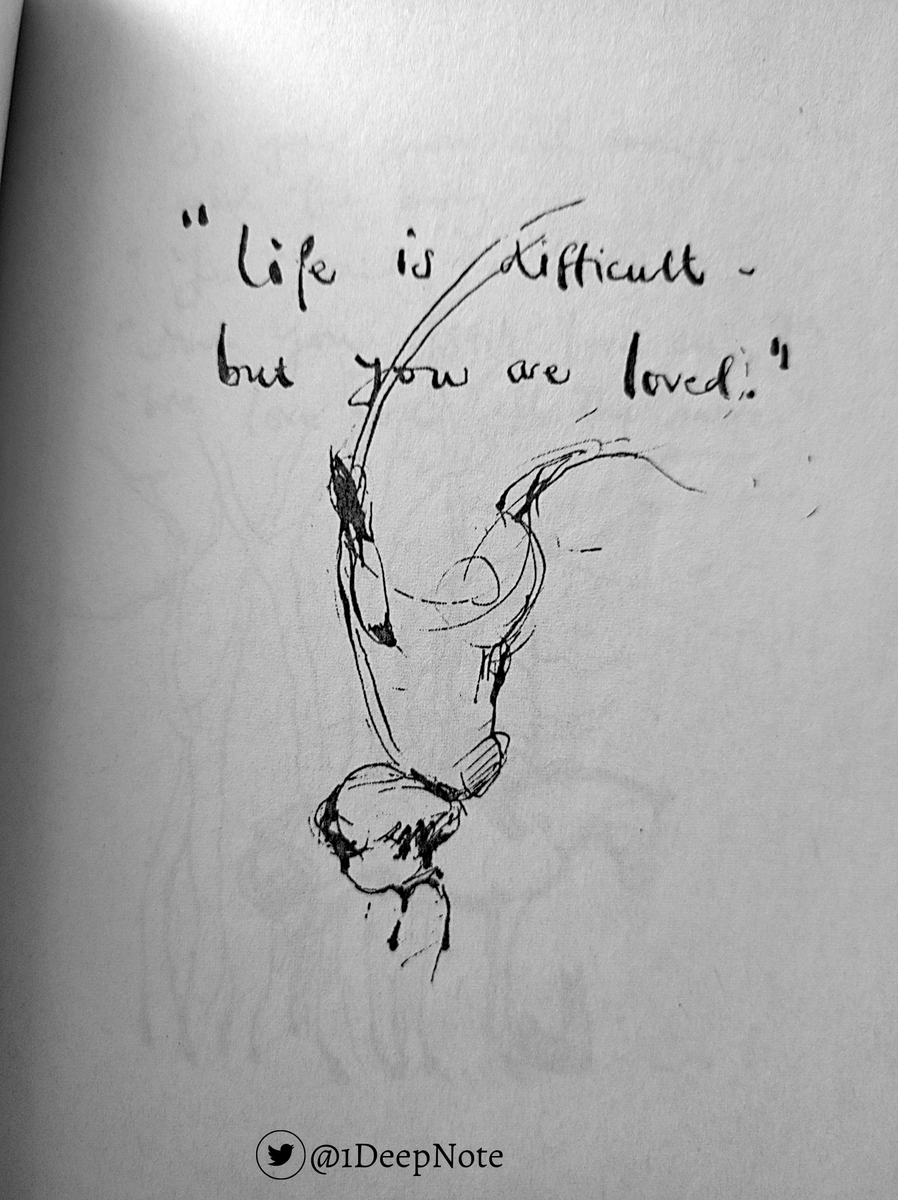 "Life is difficult -
but you are loved."
@1DeepNote